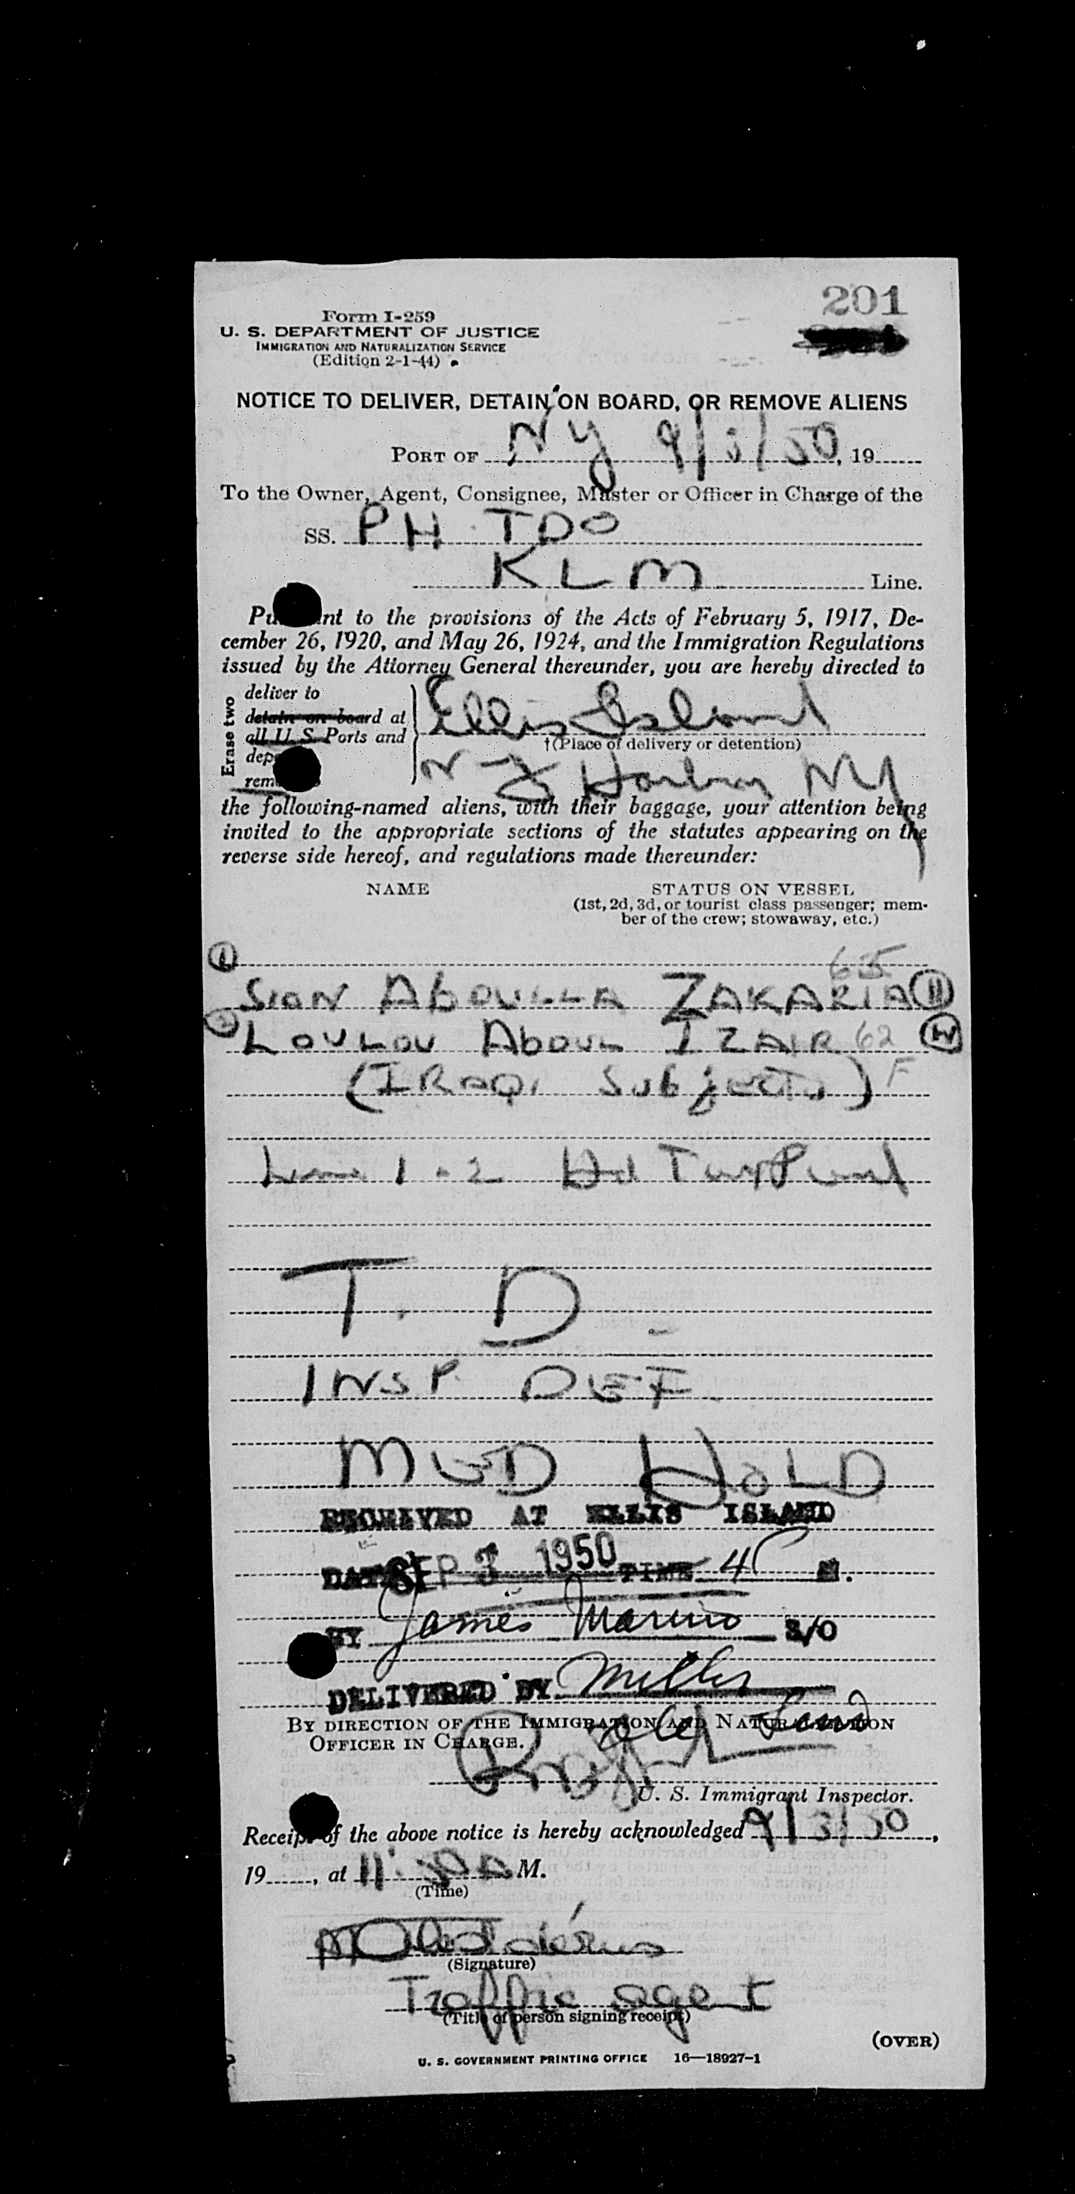 201
Form I-259
U. S. DEPARTMENT OF JUSTICE
IMMIGRATION AND NATURALIZATION SERVICE
(Edition 2-1-44)
NOTICE TO DELIVER, DETAIN ON BOARD, OR REMOVE ALIENS
PORT OF NY 9/3/50, 19
To the Owner, Agent, Consignee, Master or Officer in Charge of the
SS. PH TDO
KLM Line.
nt to the provisions of the Acts of February 5, 1917, De-
cember 26, 1920, and May 26, 1924, and the Immigration Regulations
issued by the Attorney General thereunder, you are hereby directed to
Erase two
deliver to
detain on board at
all U S Ports and
Ellis Island
†(Place of delivery or detention)
N Y Harbor NY
the following-named aliens, with their baggage, your attention being
invited to the appropriate sections of the statutes appearing on the
reverse side hereof, and regulations made thereunder:
NAME STATUS ON VESSEL
(1st, 2d, 3d, or tourist class passenger; mem-
ber of the crew; stowaway, etc.)
1 65
SION ABDULLA ZAKARIA H
2 LOULOU ABDUL IZAIR 62 W
(IRAQI SUBJECTS) F
Line 1-2
T. D.
INSP. DEF.
MED HOLD
RECEIVED AT ELLIS ISLAND
DATE SEP 3 1950 TIME 4 P M.
BY James Marino S/O
DELIVERED BY Miller
BY DIRECTION OF THE IMMIGRATION AND NATURALIZATION
OFFICER IN CHARGE.
U. S. Immigrant Inspector.
Receipt of the above notice is hereby acknowledged 9/3/50,
19, at 11:30 A M.
(Time)
(Signature)
Traffic agent
(Title of person signing receipt)
(OVER)
U. S. GOVERNMENT PRINTING OFFICE 16—18927-1